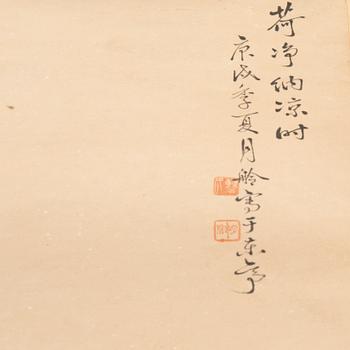 荷净纳凉时
庚戌季夏月舲写于东亭